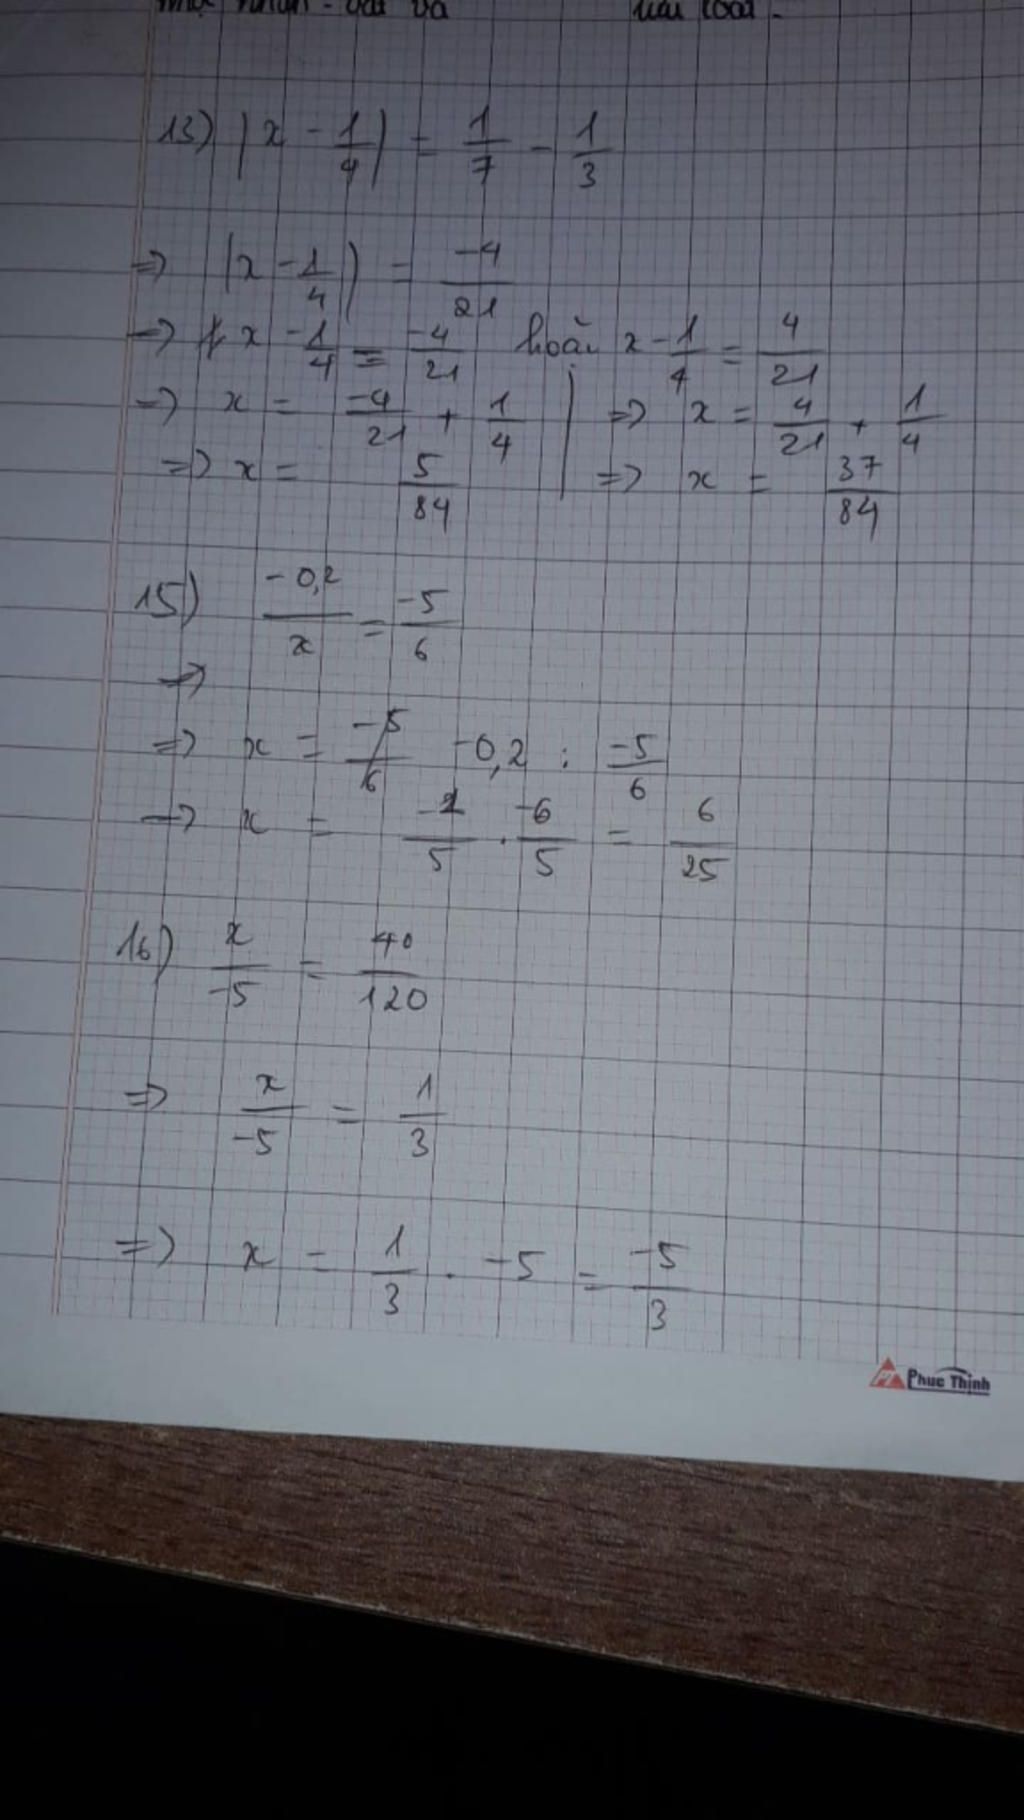 13) |x - 1/4| = 1/7 - 1/3
=> |x - 1/4| = -4/21
=> x - 1/4 = -4/21 hoặc x - 1/4 = 4/21
=> x = -4/21 + 1/4 | => x = 4/21 + 1/4
=> x = 5/84 | => x = 37/84
15) -0,2/x = -5/6
=>
=> x = -0,2 : -5/6
=> x = -1/5 . -6/5 = 6/25
16) x/-5 = 40/120
=> x/-5 = 1/3
=> x = 1/3 . -5 = -5/3
Phuc Thinh